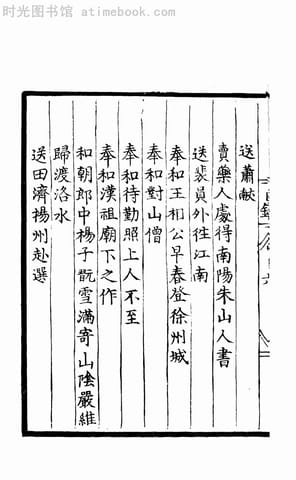 时光图书馆 atimebook.com
送蕭獻
賣藥人處得南陽朱山人書
送裴員外往江南
奉和王相公早春登徐州城
奉和對山僧
奉和待勤照上人不至
奉和漢祖廟下之作
和朝郎中楊子翫雪滿寄山陰嚴維
歸渡洛水
送田濟揚州赴選